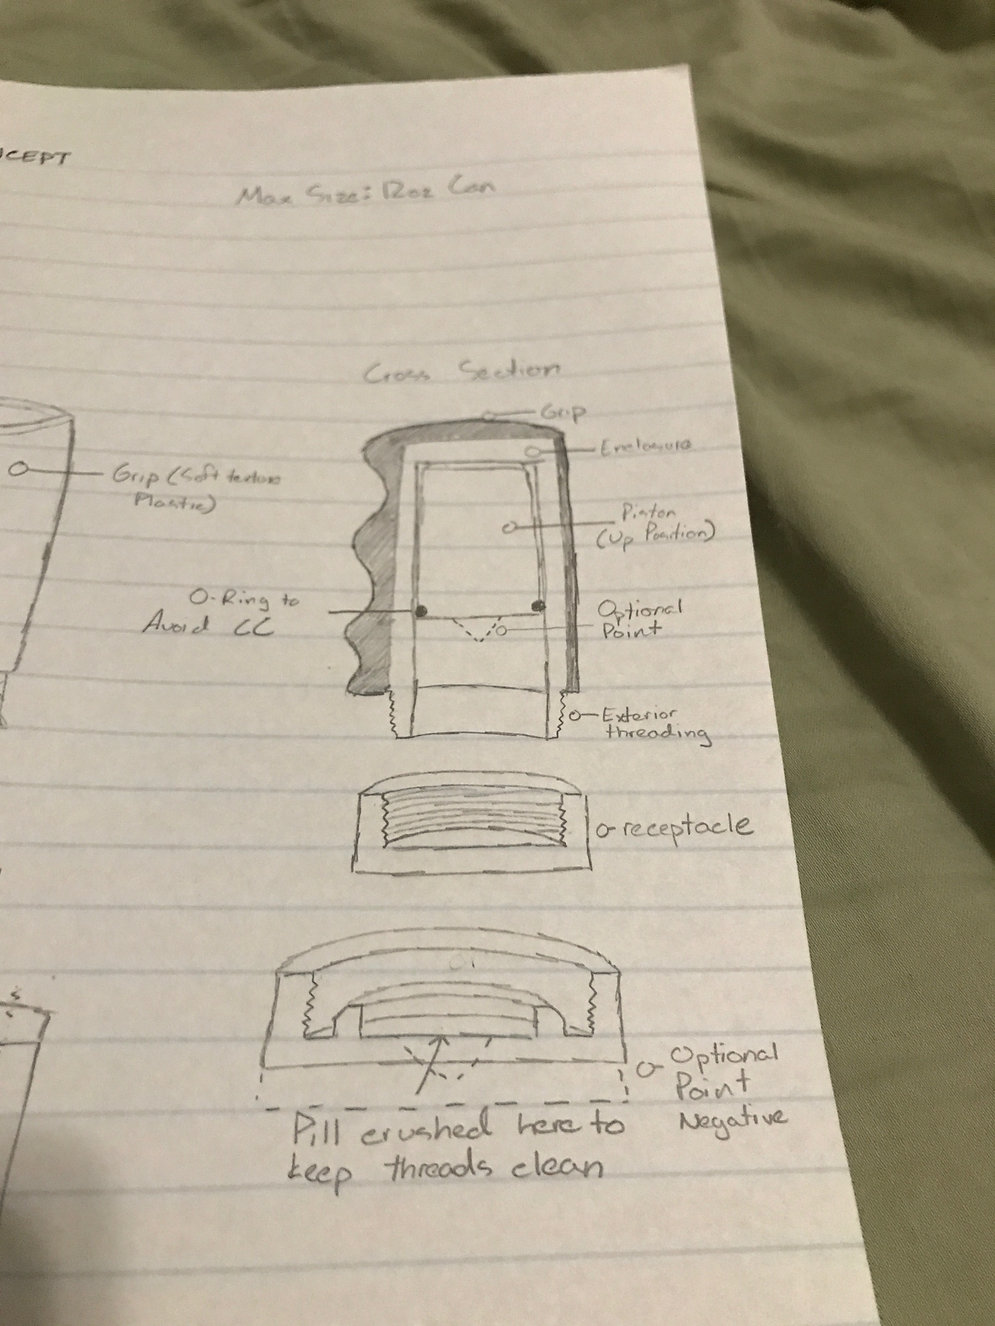 NCEPT
Max Size: 12oz Can
Cross Section
Grip
Enclosure
Grip (Soft texture
Plastic)
Piston
(Up Position)
O-Ring to
Avoid CC
Optional
Point
Exterior
threading
receptacle
Optional
Point
Negative
Pill crushed here to
keep threads clean